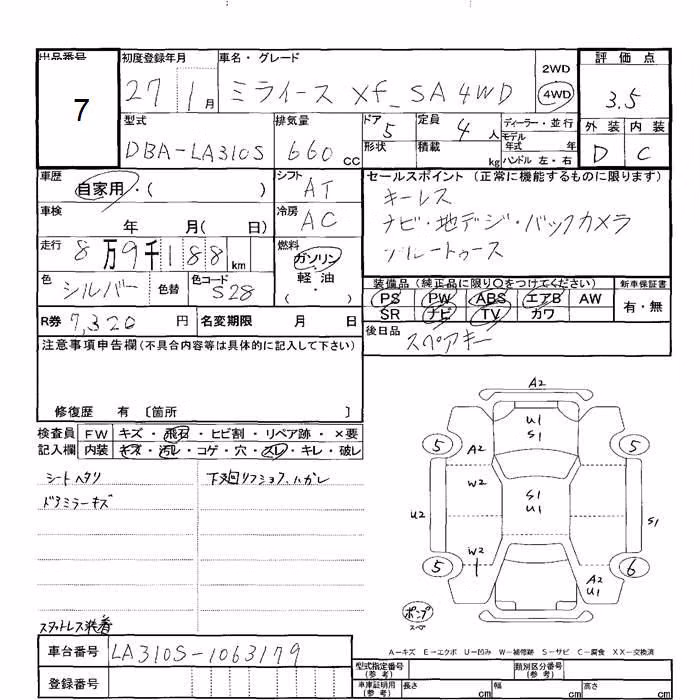 出品番号 初度登録年月 車名・グレード
7 27 1月 ミライース Xf_SA 4WD 2WD 4WD
評価点
3.5
外装 内装
D C
型式 排気量 ドア 定員 ディーラー・並行
DBA-LA310S 660cc 5 4人 モデル年式 年
形状 積載 kg ハンドル 左・右
車歴 シフト セールスポイント (正常に機能するものに限ります)
自家用・( ) AT キーレス
車検 年 月( 日) 冷房 AC ナビ・地デジ・バックカメラ
走行 8万9千188km 燃料 ガソリン 軽油 ( ・ ) ブルートゥース
色 シルバー 色替 色コード S28
装備品(純正品に限り〇をつけてください) 新車保証書
PS PW ABS エアB AW 有・無
SR ナビ TV カワ
R券 7,320円 名変期限 月 日 後日品 スペアキー
注意事項申告欄(不具合内容等は具体的に記入して下さい)
修復歴 有 〔箇所 〕
検査員 FW キズ・飛石・ヒビ割・リペア跡・×要
記入欄 内装 キズ・汚レ・コゲ・穴・スレ・キレ・破レ
シートヘタリ 下廻リフショク、ハガレ
ドアミラーキズ
スタットレス装着
A2
U1
S1
5 5
A2
W2
S1
U1
U2 S1
W2
5 6
A2
U1
ポンプ
スペア
A-キズ E-エクボ U-凹み W-補修跡 S-サビ C-腐食 XX-交換済
車台番号 LA310S-1063179
登録番号
型式指定番号(参考) 類別区分番号(参考)
車庫証明用(参考) 長さ cm 幅 cm 高さ cm